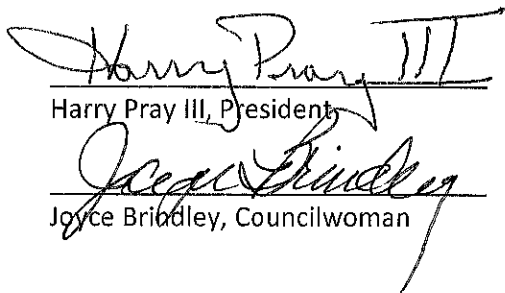 Harry Pray III
Harry Pray III, President
Joyce Brindley
Joyce Brindley, Councilwoman